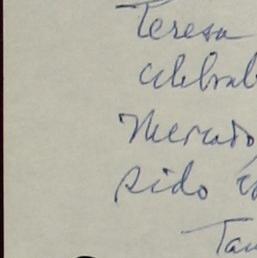 Teresa
celebra
Mercado
sido
Tam